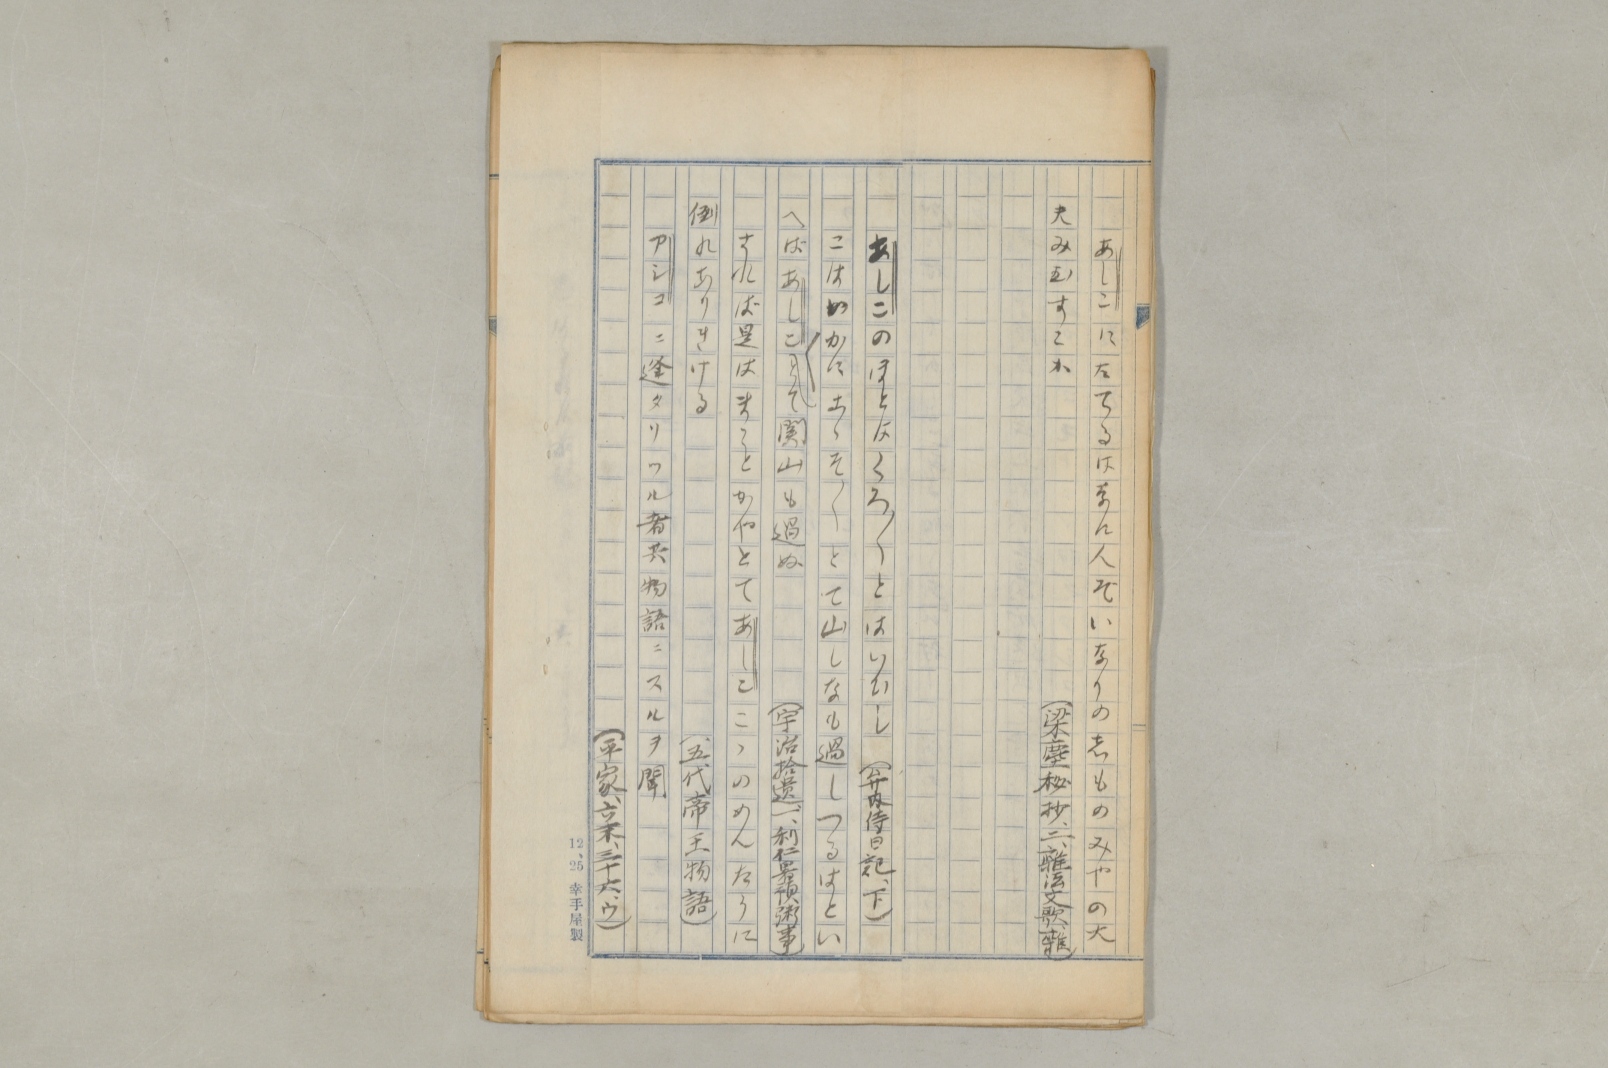 あしこにたてるはなん人ぞいなりのしものみやの大
夫みむすこか
（梁塵秘抄、二、雑法文歌、雑）
あしこのほとはくろ〳〵とはいひし（弁内侍日記、下）
こはいかにあゝそ〳〵とて山しなも過しつるはとい
へばあしことて関山も過ぬ
（宇治拾遺一、利仁暑預粥事）
されば是はまことかやとてあしここゝのめんたうに
倒れありきける
（五代帝王物語）
アシコニ逢タリツル者共物語ニスルヲ聞
（平家、六末、三十六、ウ）
12、25 幸手屋製